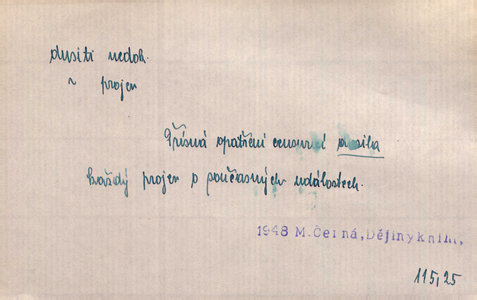 dusiti nedok.
~ projev
Přísná opatření censurní dusila
každý projev o současných událostech.
1948 M.Černá, Dějiny knih.,
115,25